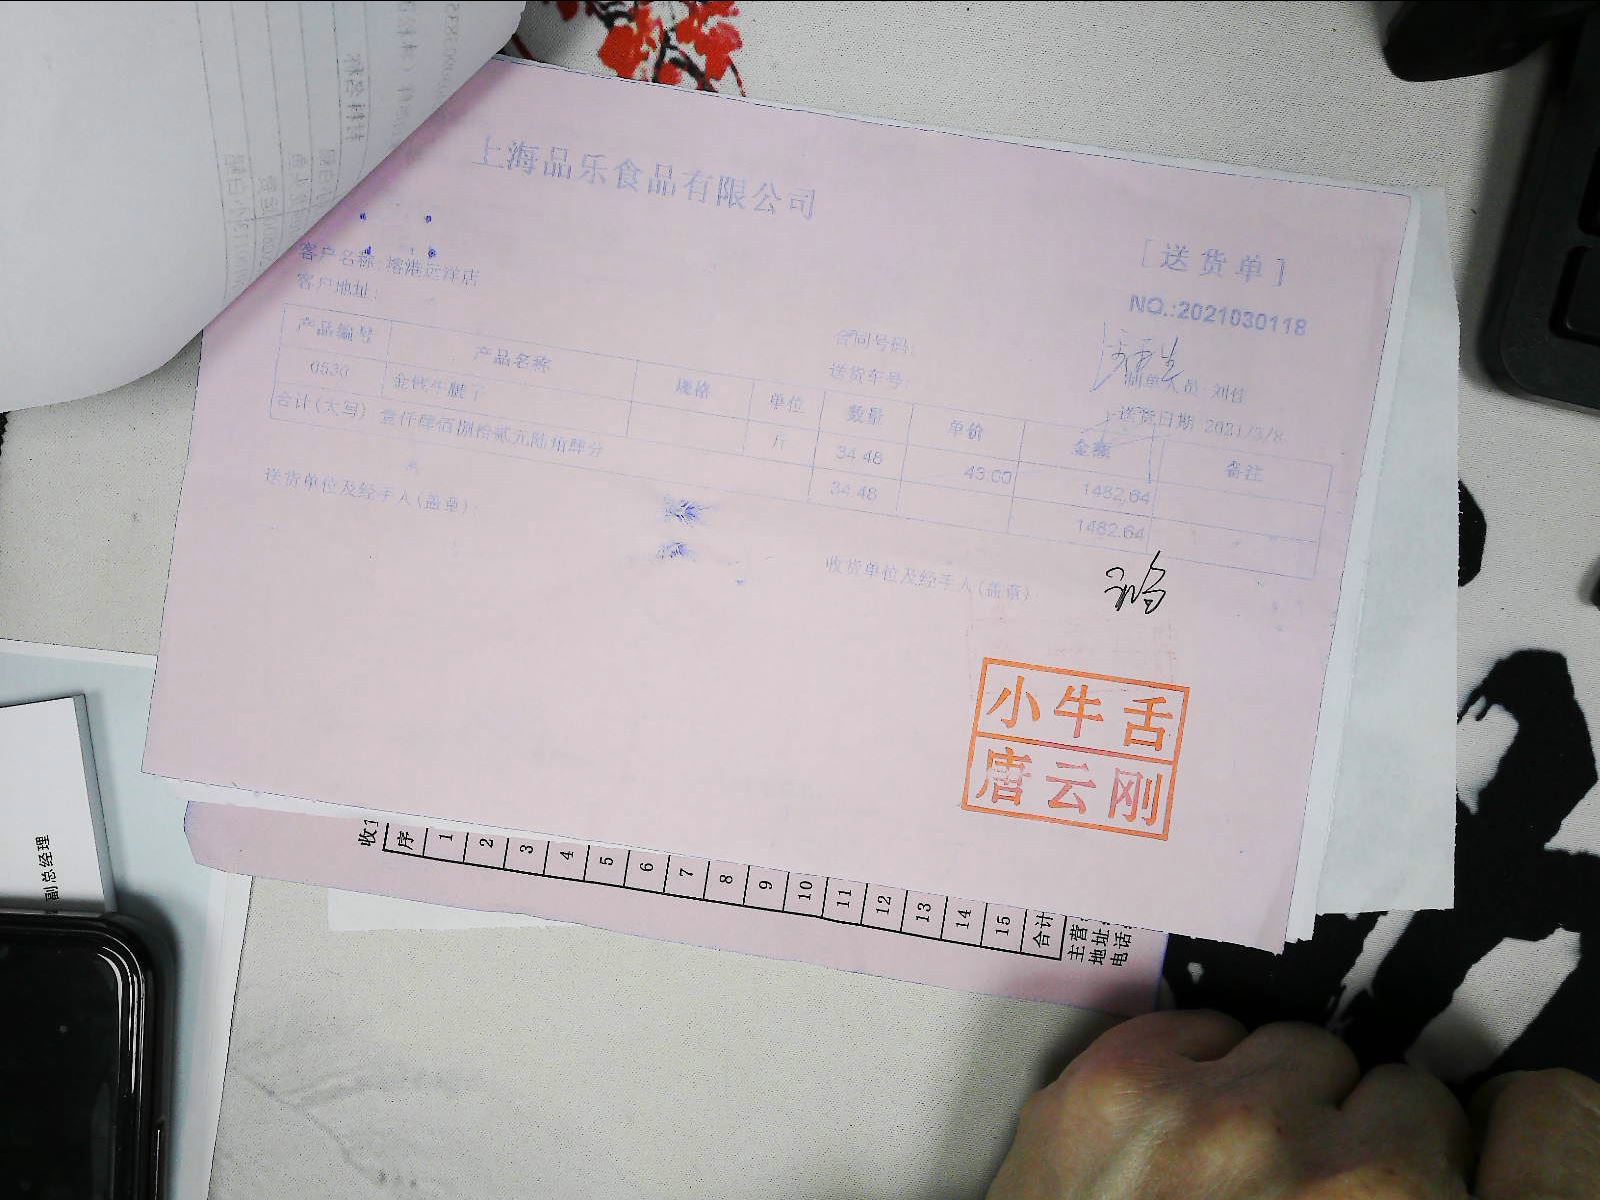 上海品乐食品有限公司
[送货单]
NO.:2021030118
客户名称:
远洋店
客户地址:
合同号码:
送货车号:
制单人员:刘佳
送货日期 2021/3/8
产品编号 产品名称 规格 单位 数量 单价 金额 备注
0530 金钱牛腱子 斤 34.48 43.00 1482.64
合计(大写) 壹仟肆佰捌拾贰元陆角肆分 34.48 1482.64
送货单位及经手人(盖章):
收货单位及经手人(盖章):
小牛舌
唐云刚
序 1 2 3 4 5 6 7 8 9 10 11 12 13 14 15 合计
主营
地址
电话
副总经理